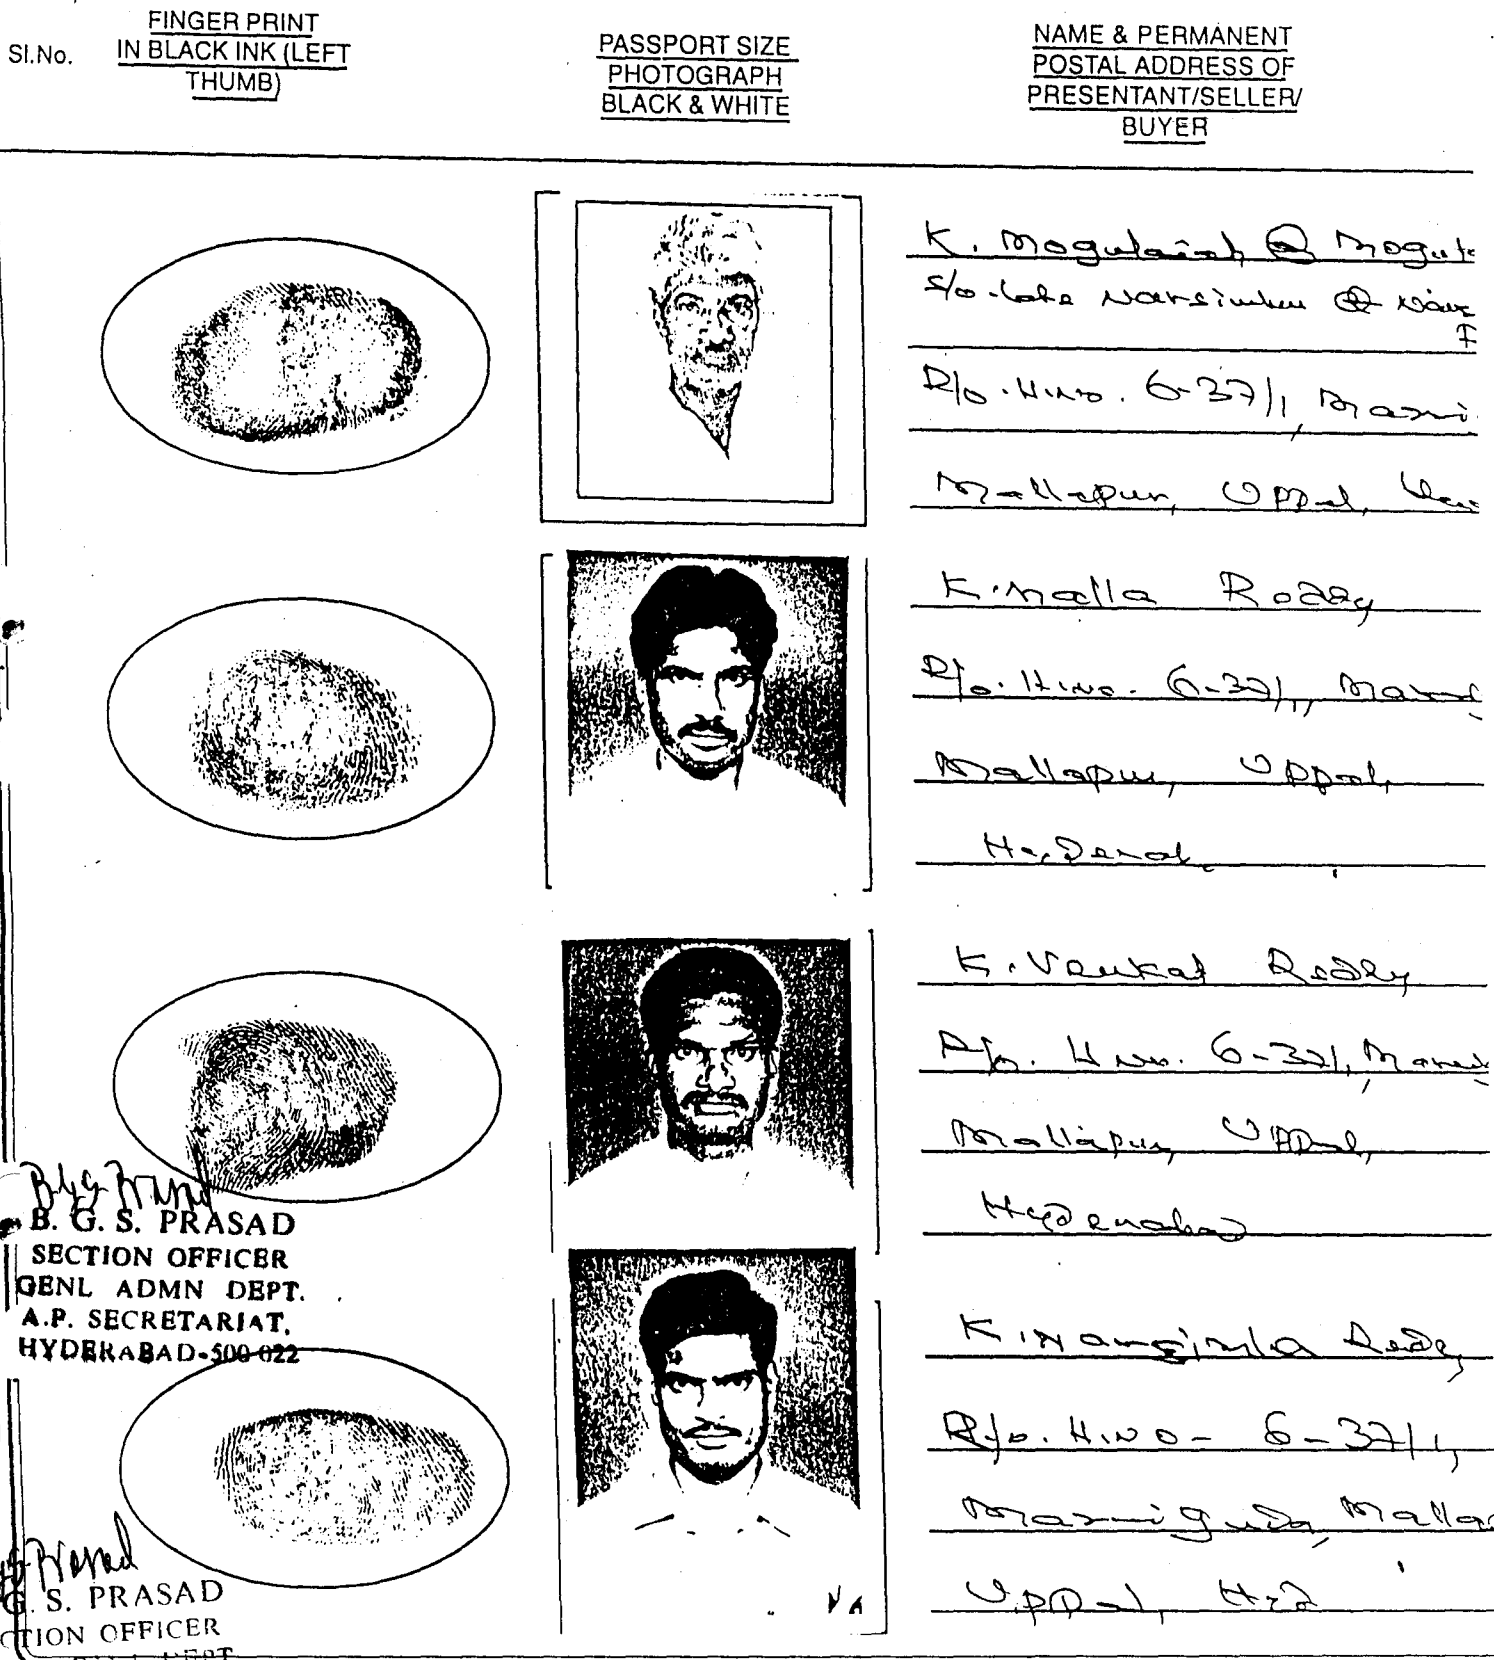 Sl.No.
FINGER PRINT
IN BLACK INK (LEFT
THUMB)
PASSPORT SIZE
PHOTOGRAPH
BLACK & WHITE
NAME & PERMANENT
POSTAL ADDRESS OF
PRESENTANT/SELLER/
BUYER
K. Mogulaiah @
S/o. Late Narsimha @
R/o. H.No. 6-37/1,
Mallapur, Uppal,
K. Malla Reddy
R/o. H.No. 6-37/1,
Mallapur, Uppal,
K. Venkat Reddy
R/o. H.No. 6-37/1,
Mallapur, Uppal,
Hyderabad
K. Narsimha Reddy
R/o. H.NO- 6-37/1,
Mallap
Uppal, Hyd
B.G.S. Prasad
B. G. S. PRASAD
SECTION OFFICER
GENL ADMN DEPT.
A.P. SECRETARIAT,
HYDERABAD-500 022
Prasad
G. S. PRASAD
CTION OFFICER